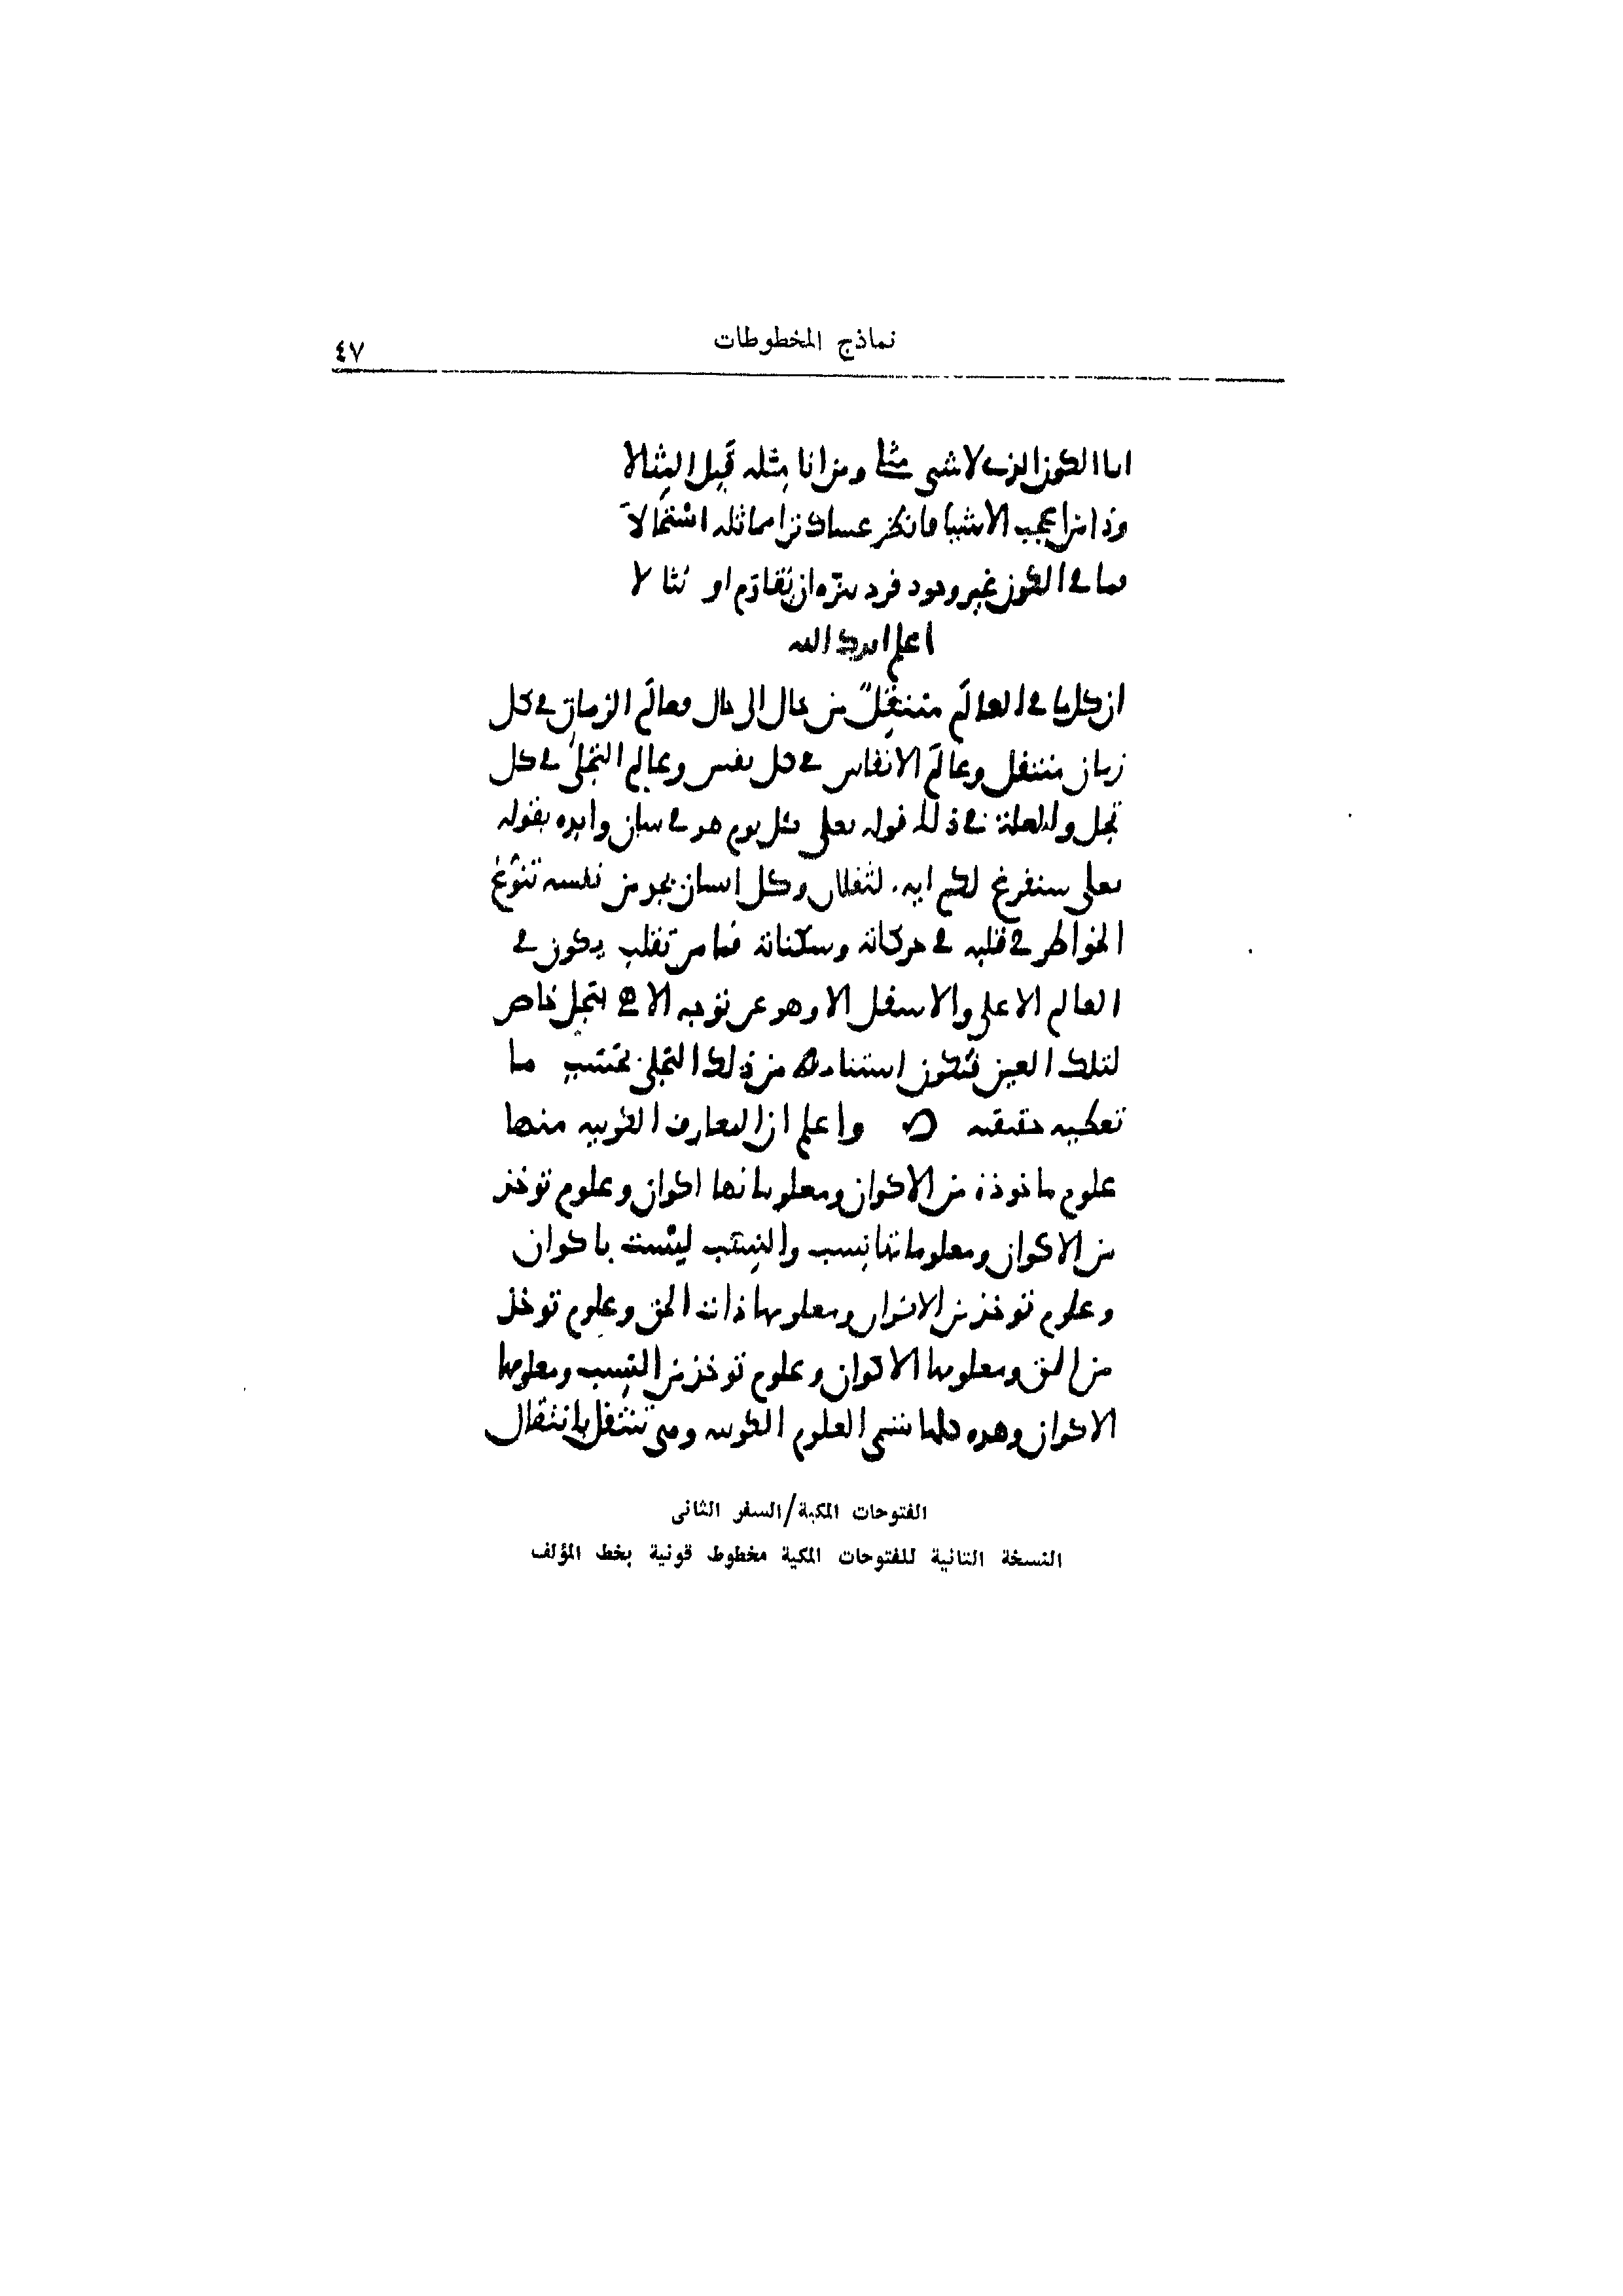 نماذج المخطوطات
٤٧
انا الكون الذى لا شى مثلى ومن انا مثله قبل المثالا
وذا من اعجب الاشيا فانظر عساك ترا مماثله استحالا
فما فى الكون غير وجود فرد تنزه ان يقاوم او ينالا
اعلم ايدك الله
ان كل ما فى العالم منتقل من حال الى حال فعالم الزمان فى كل
زمان منتقل وعالم الانفاس فى كل نفس وعالم التجلى فى كل
تجل والعلة فى ذلك قوله تعلى كل يوم هو فى شان وايده بقوله
تعلى سنفرغ لكم ايه الثقلان وكل انسان يجد من نفسه تنوع
الخواطر فى قلبه فى حركاته وسكناته فما من تقلب يكون فى
العالم الاعلى والاسفل الا وهو عن توجه الاهى بتجل خاص
لتلك العين فيكون استناده من ذلك التجلى بحسب ما
تعطيه حقيقته واعلم ان المعارف الكونيه منها
علوم ماخوذة من الاكوان ومعلوماتها اكوان وعلوم توخذ
من الاكوان ومعلوماتها نسب والنسب ليست باكوان
وعلوم توخذ من الاكوان ومعلومها ذات الحق وعلوم توخذ
من الحق ومعلومها الاكوان وعلوم توخذ من النسب ومعلومها
الاكوان وهذه كلها تسمى العلوم الكونيه وهى تنتقل بانتقال
الفتوحات المكية/السفر الثانى
النسخة الثانية للفتوحات المكية مخطوط قونية بخط المؤلف